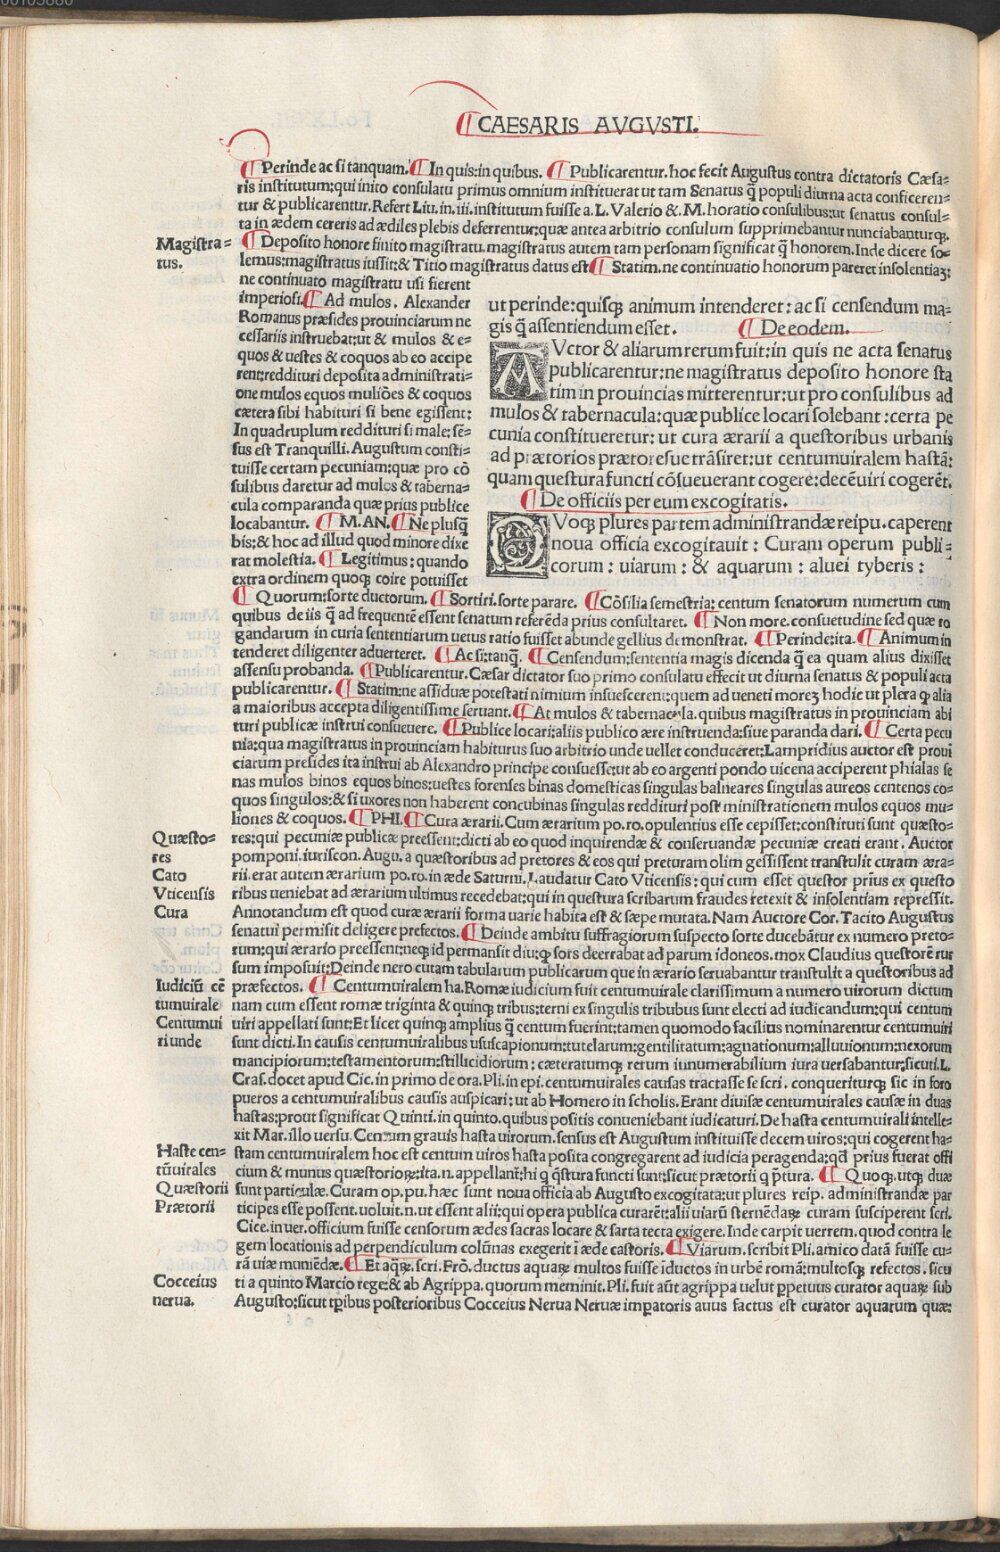 CAESARIS AVGVSTI.
¶ Perinde ac si tanquam. ¶ In quis:in quibus. ¶ Publicarentur. hoc fecit Augustus contra dictatoris Cæsa-
ris institutum:qui inito consulatu primus omnium instituerat ut tam Senatus q̃ populi diurna acta conficeren-
tur & publicarentur. Refert Liu. in. iii. institutum fuisse a. L. Valerio & .M. horatio consulibus:ut senatus consul-
ta in ædem cereris ad ædiles plebis deferrentur:quæ antea arbitrio consulum supprimebantur nunciabanturq̃.
Magistra-
tus.
¶ Deposito honore finito magistratu. magistratus autem tam personam significat q̃ honorem. Inde dicere so-
lemus:magistratus iussit:& Titio magistratus datus est ¶ Statim. ne continuatio honorum pareret insolentiaʒ:
ne continuato magistratu usi fierent
imperiosi. ¶ Ad mulos. Alexander
Romanus præsides prouinciarum ne
cessariis instruebat:ut & mulos & e-
quos & uestes & coquos ab eo accipe
rent:reddituri deposita administrati-
one mulos equos muliões & coquos
cætera sibi habituri si bene egissent:
In quadruplum reddituri si male: sẽ-
sus est Tranquilli. Augustum consti-
tuisse certam pecuniam:quæ pro cõ
sulibus daretur ad mulos & taberna-
cula comparanda quæ prius publice
locabantur. ¶ M. AN. ¶ Ne plusq̃
bis:& hoc ad illud quod minore dixe
rat molestia. ¶ Legitimus: quando
extra ordinem quoq̃ coire potuisset
ut perinde:quisq̃ animum intenderet: ac si censendum ma-
gis q̃ assentiendum esset. ¶ De eodem.
AVctor & aliarum rerum fuit:in quis ne acta senatus
publicarentur:ne magistratus deposito honore sta
tim in prouincias mitterentur:ut pro consulibus ad
mulos & tabernacula:quæ publice locari solebant :certa pe
cunia constitueretur: ut cura ærarii a questoribus urbanis
ad prætorios prætoresue trãsiret:ut centumuiralem hastã:
quam questura functi cõsueuerant cogere:decẽuiri cogerẽt.
¶ De officiis per eum excogitatis.
QVoq̃ plures partem administrandæ reipu. caperent
noua officia excogitauit : Curam operum publi-
corum : uiarum : & aquarum : aluei tyberis :
¶ Quorum:sorte ductorum. ¶ Sortiri. sorte parare. ¶ Cõsilia semestria: centum senatorum numerum cum
quibus de iis q̃ ad frequentẽ essent senatum referẽda prius consultaret. ¶ Non more. consuetudine sed quæ ro
gandarum in curia sententiarum uetus ratio fuisset abunde gellius demonstrat. ¶ Perinde:ita. ¶ Animum in
tenderet diligenter aduerteret. ¶ Ac si: tanq̃. ¶ Censendum:sententia magis dicenda q̃ ea quam alius dixisset
assensu probanda. ¶ Publicarentur. Cæsar dictator suo primo consulatu effecit ut diurna senatus & populi acta
publicarentur. ¶ Statim:ne assiduæ potestati nimium insuescerent:quem ad ueneti moreʒ hodie ut plera q̃ alia
a maioribus accepta diligentissime seruant. ¶ At mulos & tabernacula. quibus magistratus in prouinciam abi
turi publicæ instrui consueuere. ¶ Publice locari:aliis publico ære instruenda:siue paranda dari. ¶ Certa pecu
nia:qua magistratus in prouinciam habiturus suo arbitrio unde uellet conduceret:Lampridius auctor est proui
ciarum presides ita instrui ab Alexandro principe consuesse:ut ab eo argenti pondo uicena acciperent phialas se
nas mulos binos equos binos:uestes forenses binas domesticas singulas balneares singulas aureos centenos co-
quos singulos:& si uxores non haberent concubinas singulas reddituri post ministrationem mulos equos mu-
liones & coquos. ¶ PHI. ¶ Cura ærarii. Cum ærarium po. ro. opulentius esse cepisset:constituti sunt quæsto-
Quæsto-
res
Cato
Vticensis
Cura
res:qui pecuniæ publicæ preessent:dicti ab eo quod inquirendæ & conseruandæ pecuniæ creati erant. Auctor
pomponi. iuriscon. Augu. a quæstoribus ad pretores & eos qui preturam olim gessissent transtulit curam æra-
rii. erat autem ærarium po. ro. in æde Saturni. Laudatur Cato Vticensis : qui cum esset questor prius ex questo
ribus ueniebat ad ærarium ultimus recedebat:qui in questura scribarum fraudes retexit & insolentiam repressit.
Annotandum est quod curæ ærarii forma uarie habita est & sæpe mutata. Nam Auctore Cor. Tacito Augustus
senatui permisit deligere prefectos. ¶ Deinde ambitu suffragiorum suspecto sorte ducebãtur ex numero preto-
rum:qui ærario preessent:neq̃ id permansit diu:q̃ sors deerrabat ad parum idoneos. mox Claudius questorẽ rur
sum imposuit:Deinde nero curam tabularum publicarum que in ærario seruabantur transtulit a questoribus ad
Iudiciũ cẽ
tumuirale
Centumui
ri unde
præfectos. ¶ Centumuiralem ha. Romæ iudicium fuit centumuirale clarissimum a numero uirorum dictum
nam cum essent romæ triginta & quinq̃ tribus:terni ex singulis tribubus sunt electi ad iudicandum:qui centum
uiri appellati sunt:Et licet quinq̃ amplius q̃ centum fuerint:tamen quomodo facilius nominarentur centumuiri
sunt dicti. In causis centumuiralibus ususcapionum:tutelarum:gentilitatum:agnationum:alluuionum:nexorum
mancipiorum:testamentorum:stillicidiorum : cæteratumq̃ rerum iunumerabilium iura uersabantur:sicuti. L.
Cras. docet apud Cic. in primo de ora. Pli. in epi. centumuirales causas tractasse se scri. conqueriturq̃ sic in foro
pueros a centumuiralibus causis auspicari: ut ab Homero in scholis. Erant diuisæ centumuirales causæ in duas
hastas:prout significat Quinti. in quinto. quibus positis conueniebant iudicaturi. De hasta centumuirali intelle-
xit Mar. illo uersu. Centum grauis hasta uirorum. sensus est Augustum instituisse decem uiros:qui cogerent ha-
Haste cen-
tũuirales
Quæstorii
Prætorii
stam centumuiralem hoc est centum uiros hasta posita congregarent ad iudicia peragenda:qđ prius fuerat offi
cium & munus quæstorioꝝ:ita. n. appellant:hi q̃ q̃stura functi sunt:sicut prætorii q̃ p̃tura. ¶ Quoq̃. utq̃ duæ
sunt particulæ. Curam op. pu. hæc sunt noua officia ab Augusto excogitata:ut plures reip. administrandæ par
ticipes esse possent. uoluit. n. ut essent alii:qui opera publica curarẽt:alii uiarũ sternẽdaꝝ curam susciperent scri.
Cice. in uer. officium fuisse censorum ædes sacras locare & sarta tecta exigere. Inde carpit uerrem. quod contra le
gem locationis ad perpendiculum colũnas exegerit ĩ æde castoris. ¶ Viarum. scribit Pli. amico datã fuisse cu-
rã uiæ muniẽdæ. ¶ Et aq̃ꝝ. scri. Frõ. ductus aquaꝝ multos fuisse iductos in urbẽ romã:multosq̃ refectos. sicu
Cocceius
nerua.
ti a quinto Marcio rege:& ab Agrippa. quorum meminit. Pli. fuit aũt agrippa uelut p̱petuus curator aquaꝝ sub
Augusto:sicut tp̃ibus posterioribus Cocceius Nerua Neruæ imp̱atoris auus factus est curator aquarum quæ: